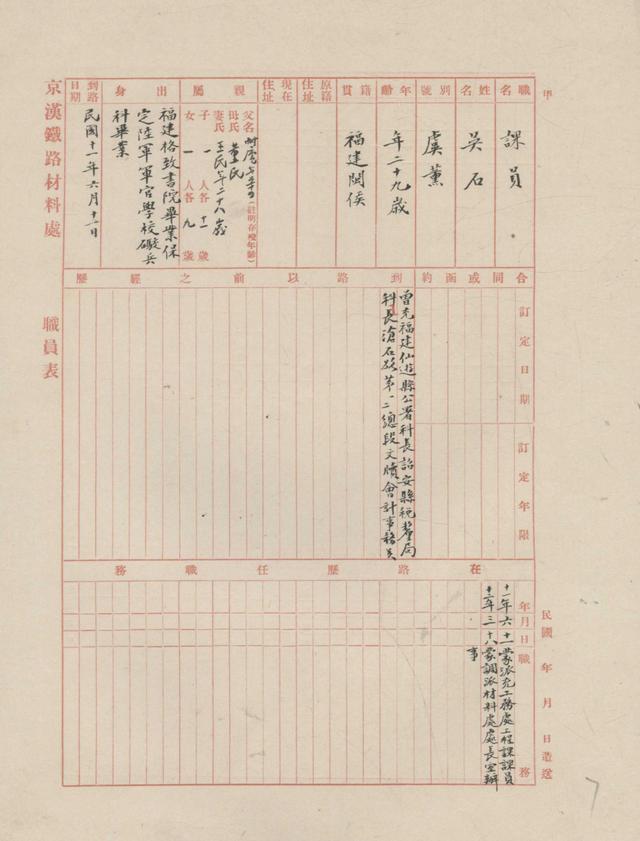 甲
職名
課員
姓名
吳石
別號
虞薰
年齡
年二十九歲
籍貫
福建閩侯
原籍住址
現在住址
親屬
父名
七十一(註明存歿年齡)
母氏 董氏
妻氏 王氏年二十八歲
子 一 人各 十一 歲
女 一 人各 九 歲
出身
福建格致書院畢業保
定陸軍軍官學校礮兵
科畢業
到路日期
民國十一年六月十二日
京漢鐵路材料處 職員表
合同或函約
訂定日期
訂定年限
到路以前之經歷
曾充福建仙遊縣公署科長詔安縣稅釐局
科長滄石路第一二總段文牘會計事務員
在路歷任職務
年月日 職務
十一年六十一蒙派充工務處工程課課員
十二年三十八蒙調派材料處處長室辦
事
民國 年 月 日造送
7